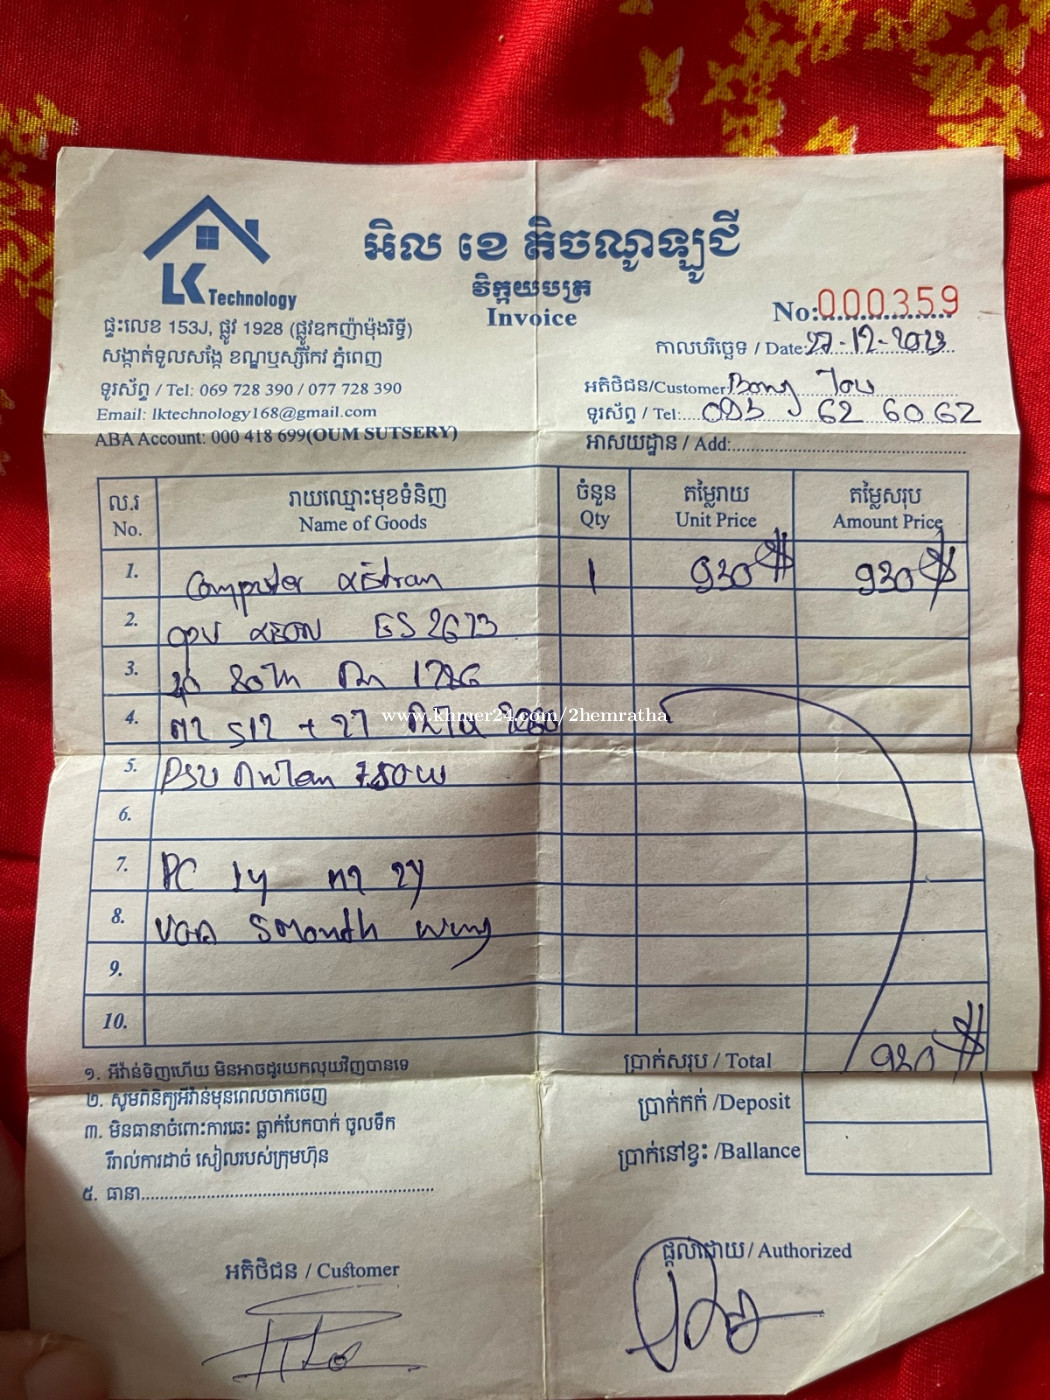 LK Technology
អិល ខេ តិចណូឡូជី
វិក្កយបត្រ
Invoice
No: 000359
ផ្ទះលេខ 153J, ផ្លូវ 1928 (ផ្លូវឧកញ៉ាម៉ុងរិទ្ធី)
សង្កាត់ទួលសង្កែ ខណ្ឌឬស្សីកែវ ភ្នំពេញ
ទូរស័ព្ទ / Tel: 069 728 390 / 077 728 390
Email: lktechnology168@gmail.com
ABA Account: 000 418 699(OUM SUTSERY)
កាលបរិច្ឆេទ / Date: 27-12-2023
អតិថិជន/Customer Bong
ទូរស័ព្ទ / Tel: 62 60 62
អាសយដ្ឋាន / Add:
ល.រ No. រាយឈ្មោះមុខទំនិញ Name of Goods ចំនួន Qty តម្លៃរាយ Unit Price តម្លៃសរុប Amount Price
1. Computer 1 930 $ 930 $
2. E5 2673
3.
4. 512 + 2T
www.khmer24.com/2hemratha
5. PSU 750W
6.
7. PC 1y 2y
8. VGA
9.
10.
ប្រាក់សរុប / Total 930 $
ប្រាក់កក់ /Deposit
ប្រាក់នៅខ្វះ /Ballance
១. អីវ៉ាន់ទិញហើយ មិនអាចដូរយកលុយវិញបានទេ
២. សូមពិនិត្យអីវ៉ាន់មុនពេលចាកចេញ
៣. មិនធានាចំពោះការឆេះ ធ្លាក់បែកបាក់ ចូលទឹក
រឺរាល់ការដាច់ សៀលរបស់ក្រុមហ៊ុន
៥. ធានា
អតិថិជន / Customer
ផ្តល់ដោយ / Authorized